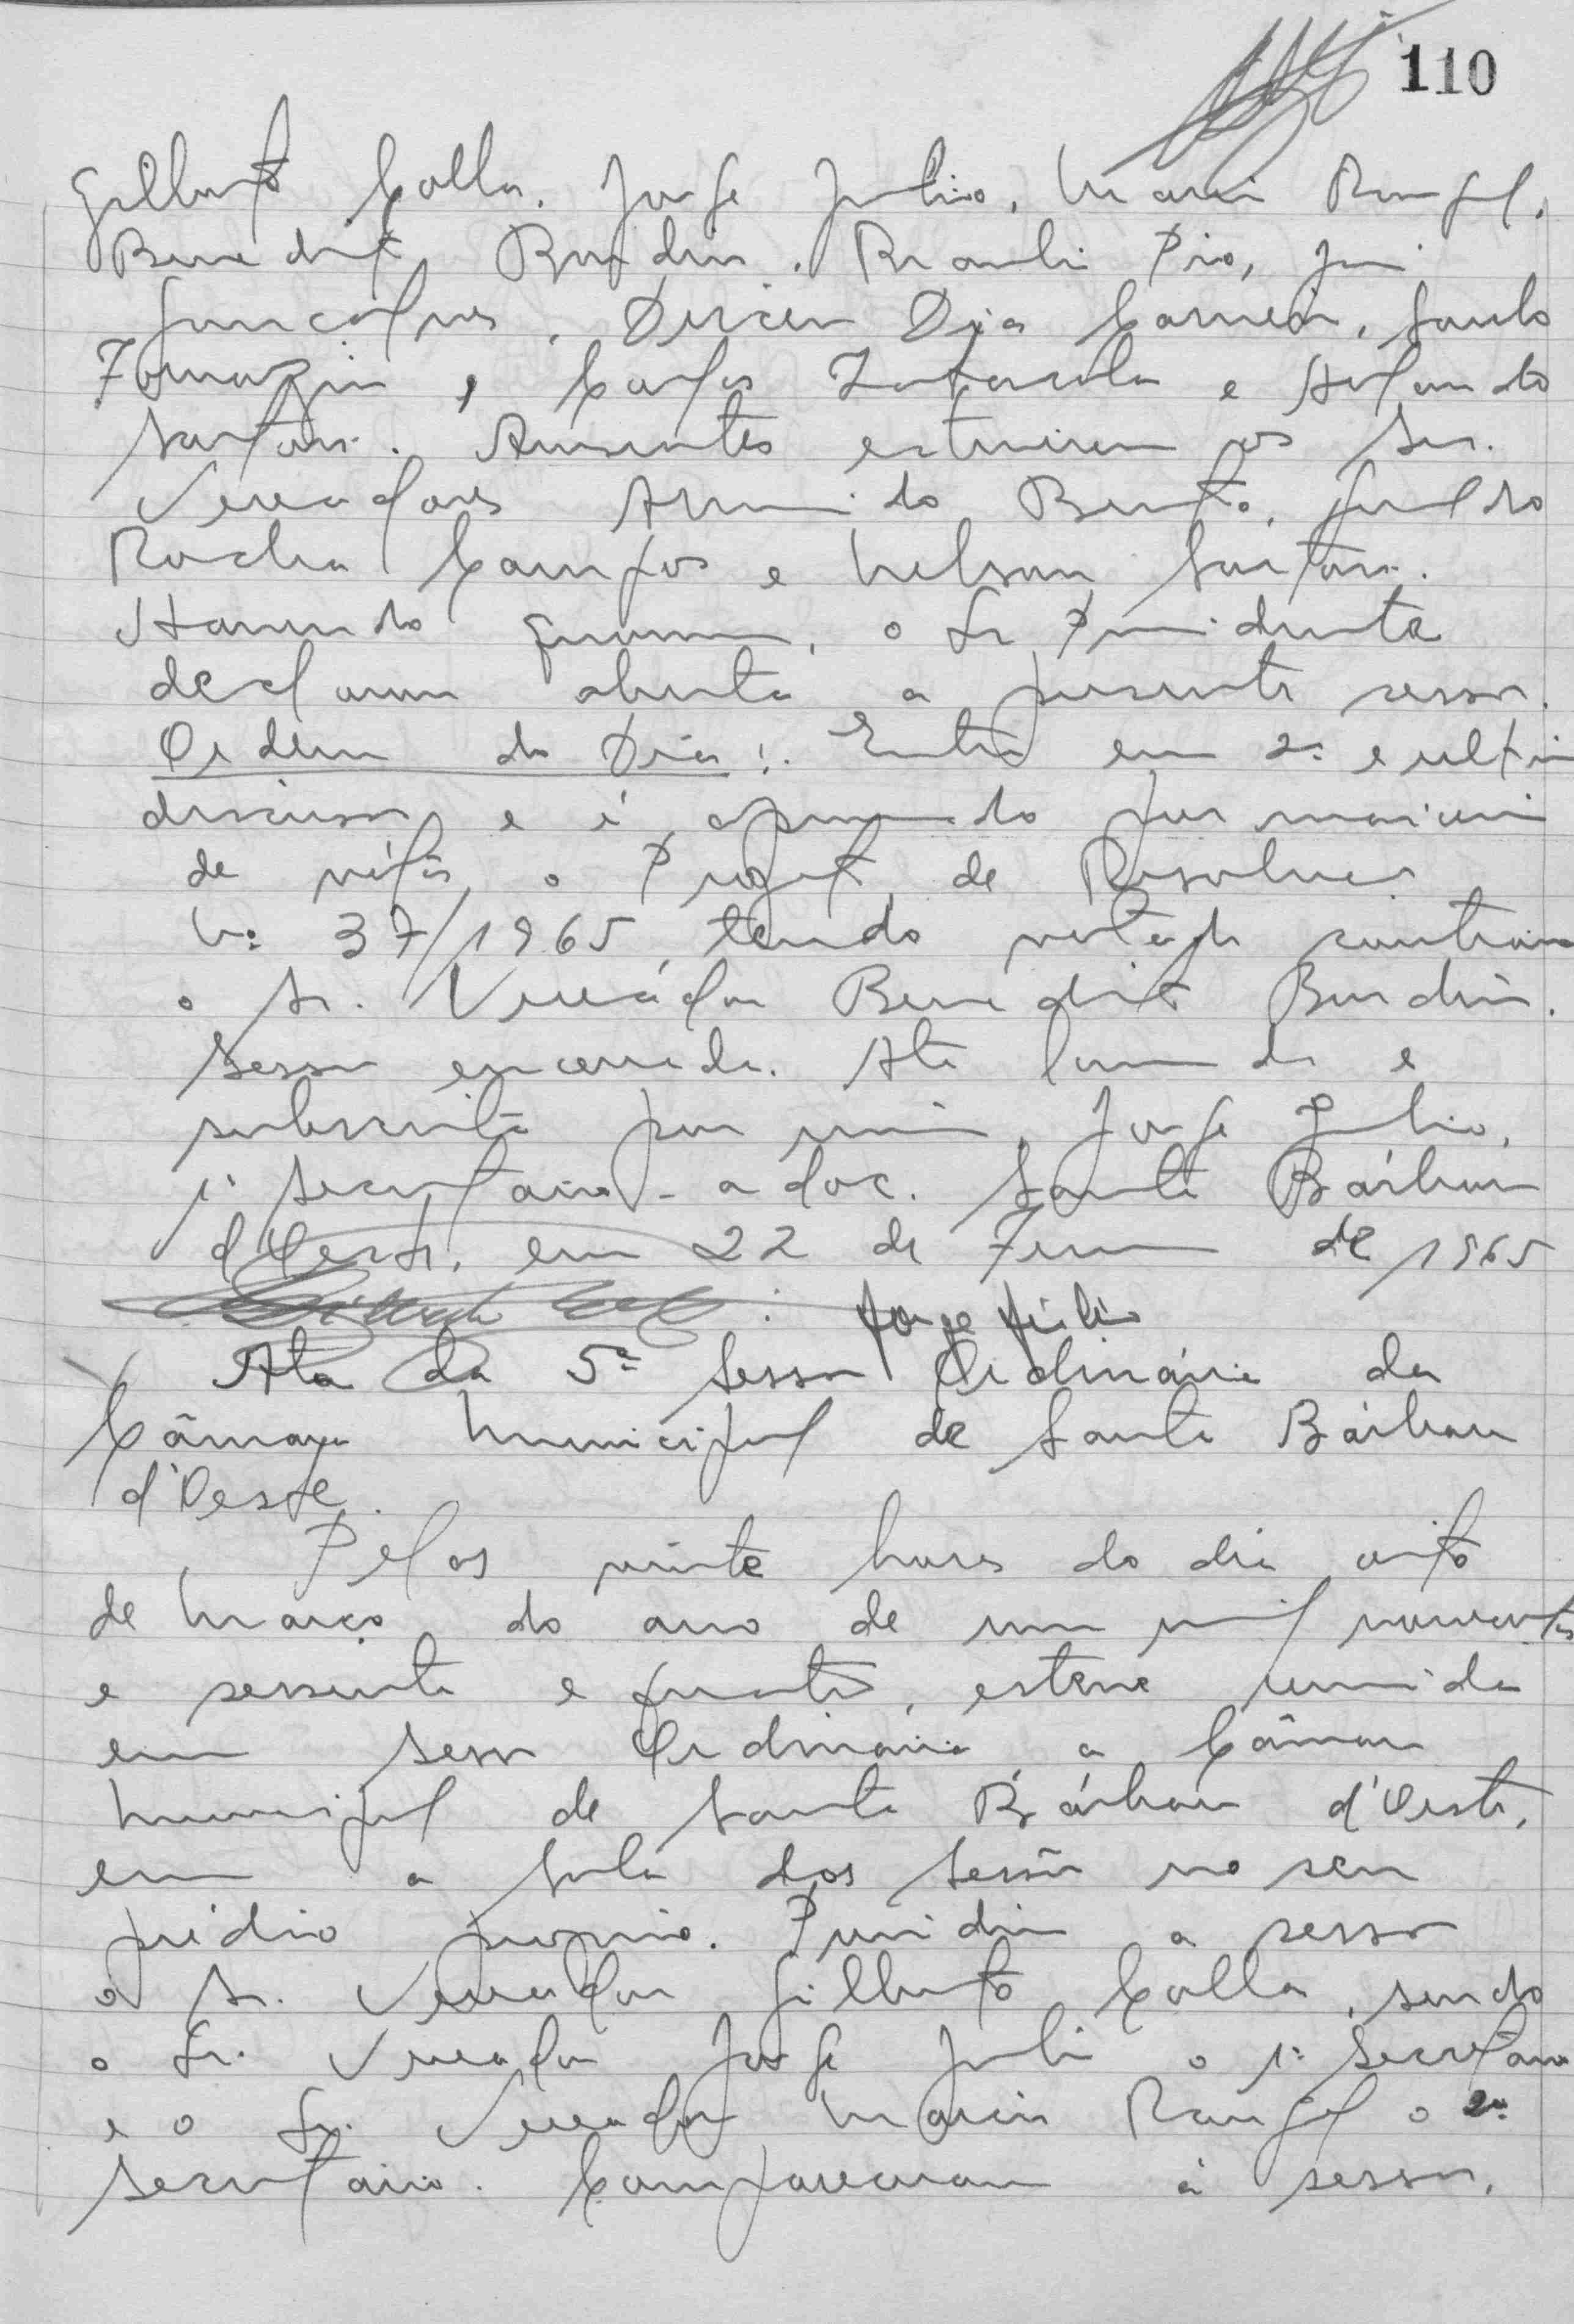 110
Gilberto Colla, Jorge Julio, Mario Rangel,
Benedito Bundin, Braulio Pio, 
Gonçalves, Dirceu Dias Carneiro, Saulo
Fornazin, e Carlos e
Sartori. Ausentes estiveram os Srs.
Vereadores Bento,
Rocha Campos e Nelson Sartori.
Havendo, o Sr Presidente
declarou aberta a presente sessão.
Ordem do Dia: Entra em 2ª e ultima
discussão e é aprovado por maioria
de votos o Projeto de Resolução
Nº 37/1965, tendo votado contrario
o Sr. Vereador Benedito Bundin.
Sessão encerrada. Ata lavrada e
subscrita por mim, Jorge Julio,
1º secretario-adoc. Santa Bárbara
d'Oeste, em 22 de de 1965
Jorge Júlio
Ata da 5ª Sessão Ordinária da
Câmara Municipal de Santa Bárbara
d'Oeste.
Pelas vinte horas do dia oito
de Março do ano de um mil novecentos
e sessenta e, esteve reunida
em Sessão Ordinária a Câmara
Municipal de Santa Bárbara d'Oeste,
em a Sala das Sessões no seu
prédio proprio. Presidiu a sessão
o Sr. Vereador Gilberto Colla, sendo
o Sr. Vereador Jorge Julio o 1º Secretário
e o Sr. Vereador Mario Rangel o 2º
Secretario. Compareceram à sessão,